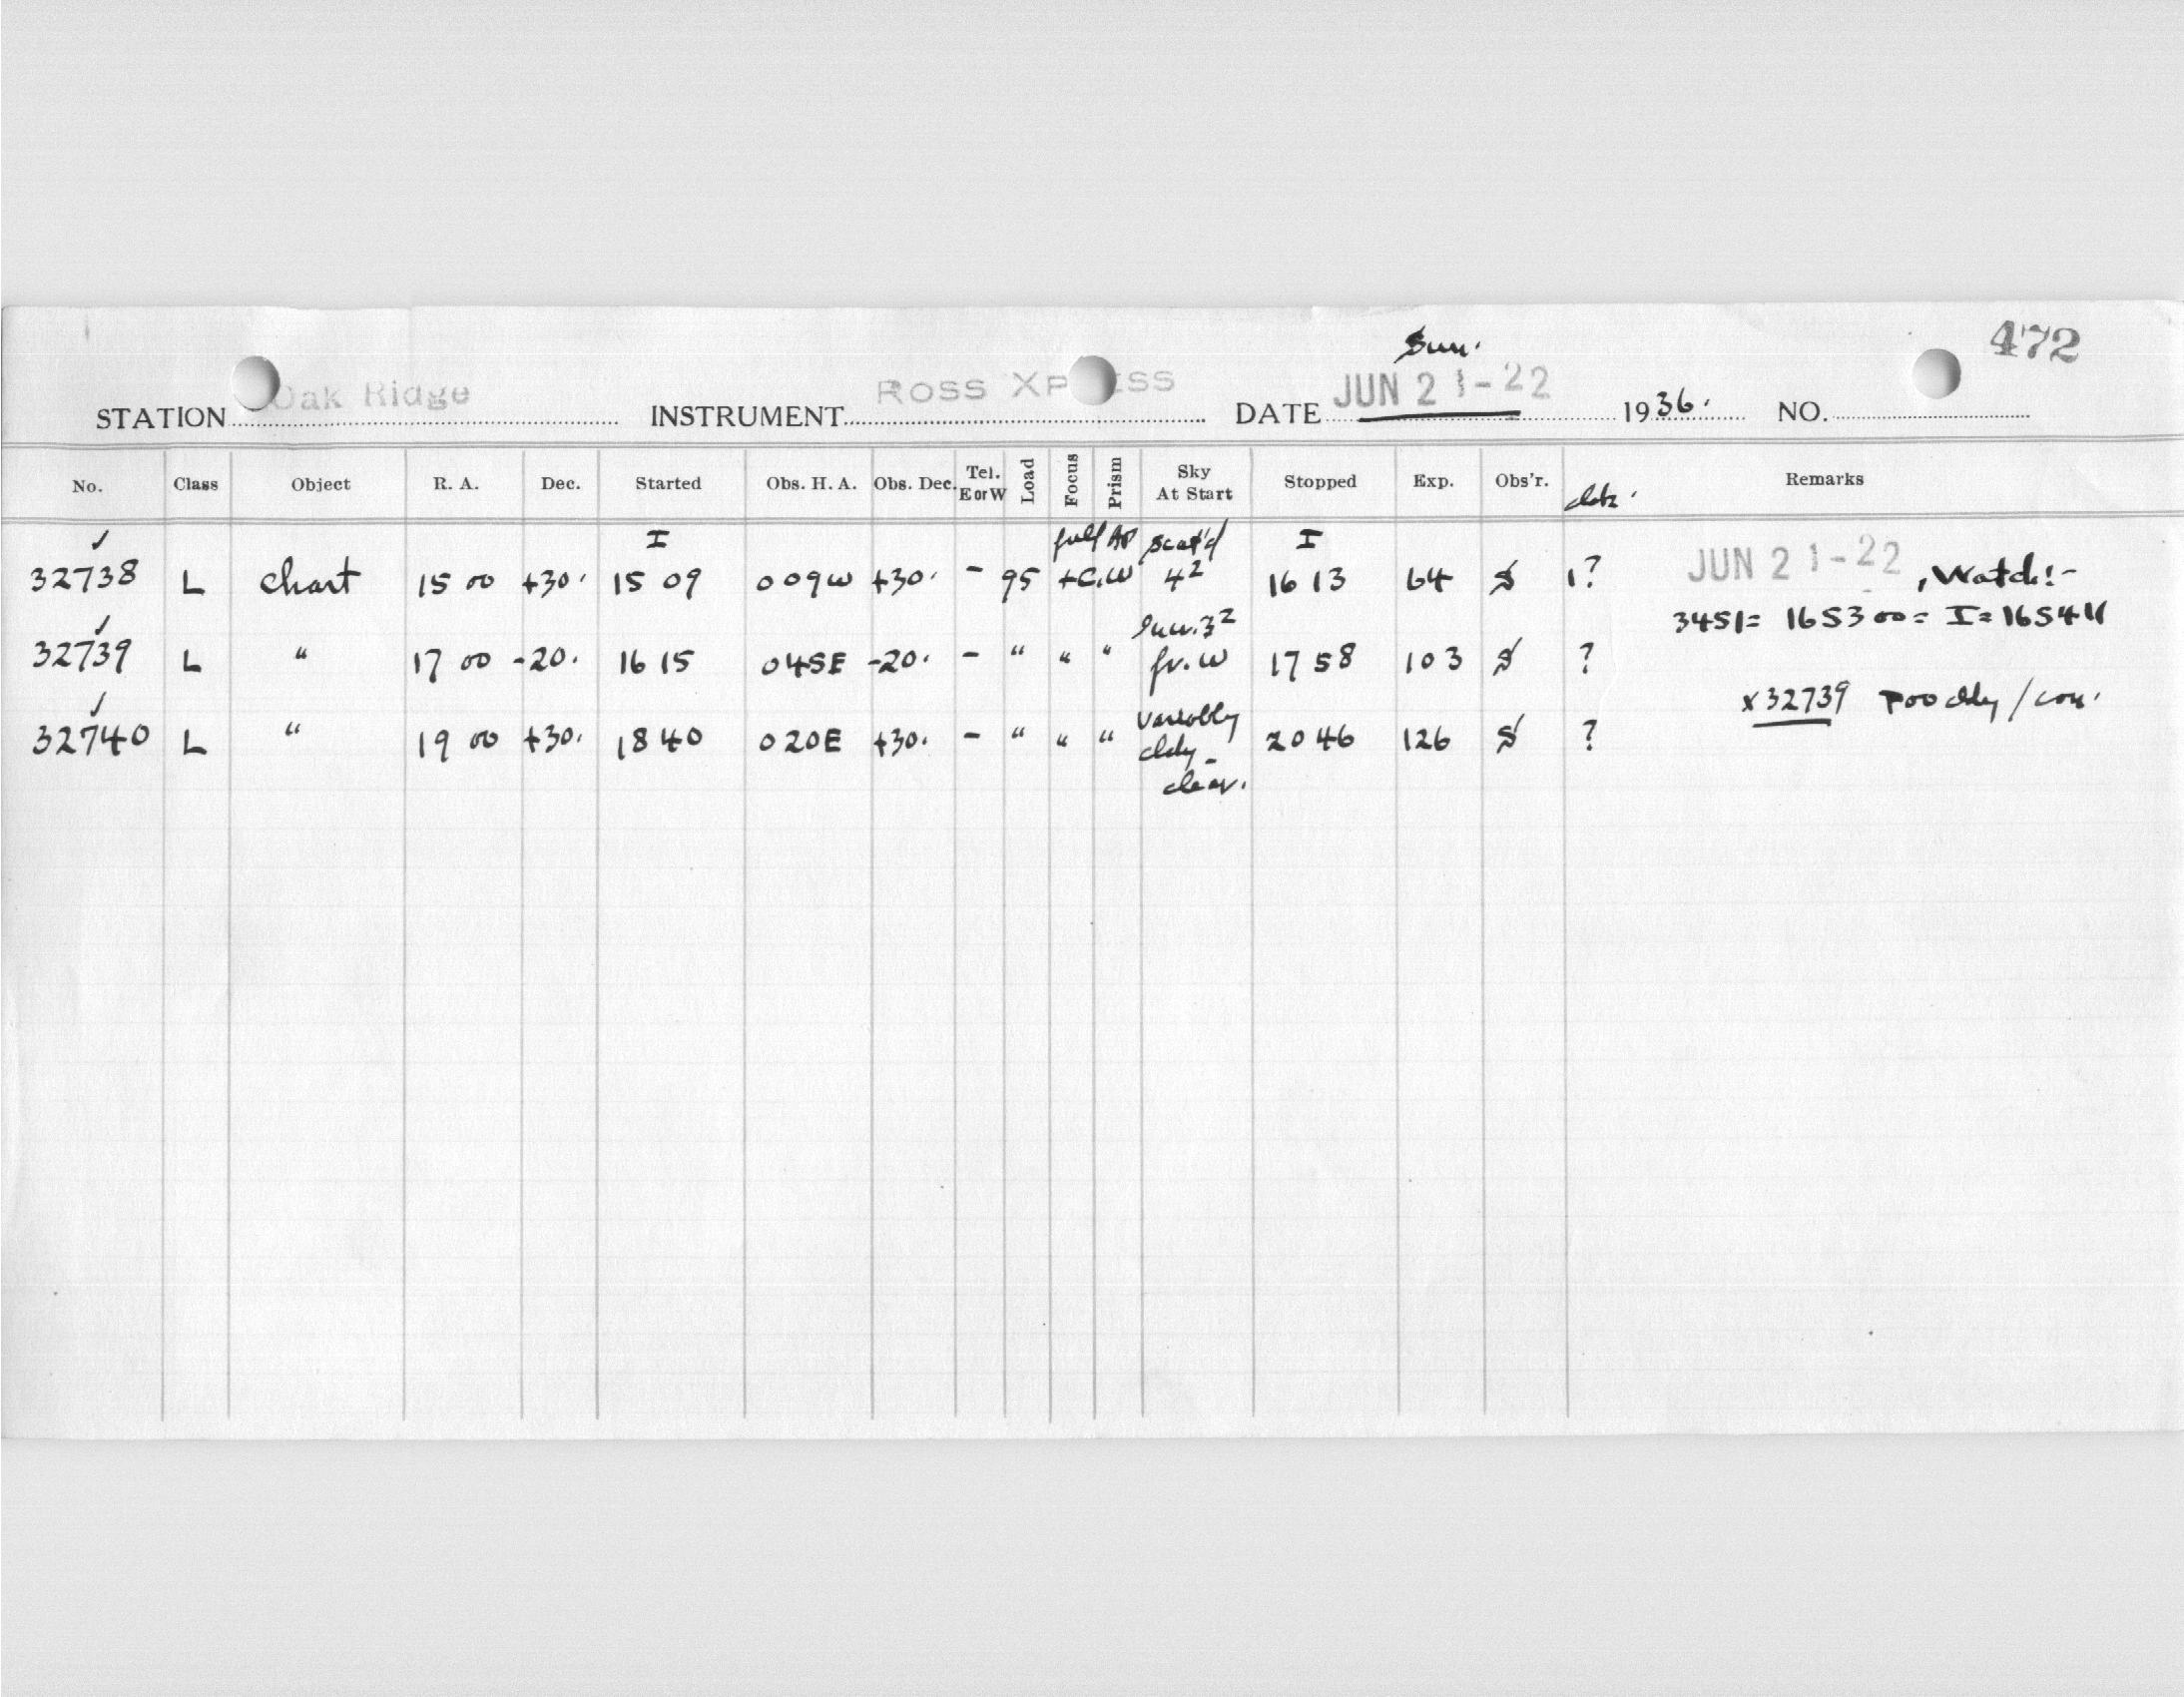 472
Sun.
STATION Oak Ridge INSTRUMENT ROSS XPRESS DATE JUN 21-22 1936. NO.
No. Class Object R. A. Dec. Started Obs. H. A. Obs. Dec. Tel. E or W Load Focus Prism Sky At Start Stopped Exp. Obs'r. Remarks
✓ I full AP scat'd I
32738 L Chart 15 00 +30. 15 09 0 09W +30. - 95 +C.W 4² 16 13 64 S 1? JUN 21-22, Watch:-
3451= 165300= I= 165411
✓ 3²
32739 L " 17 00 -20. 16 15 0 45E -20. - " " " fr. W 17 58 103 S ?
x32739 Poo
✓ Variably
32740 L " 19 00 +30. 18 40 0 20E +30. - " " " cldy - 20 46 126 S ?
clear.